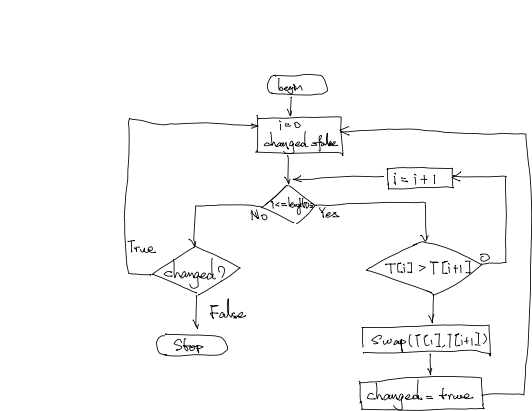 begin
i=0
changed=false
i = i+1
No
Yes
True
changed?
T[i] > T[i+1]
0
False
Stop
Swap(T[i],T[i+1])
changed = true